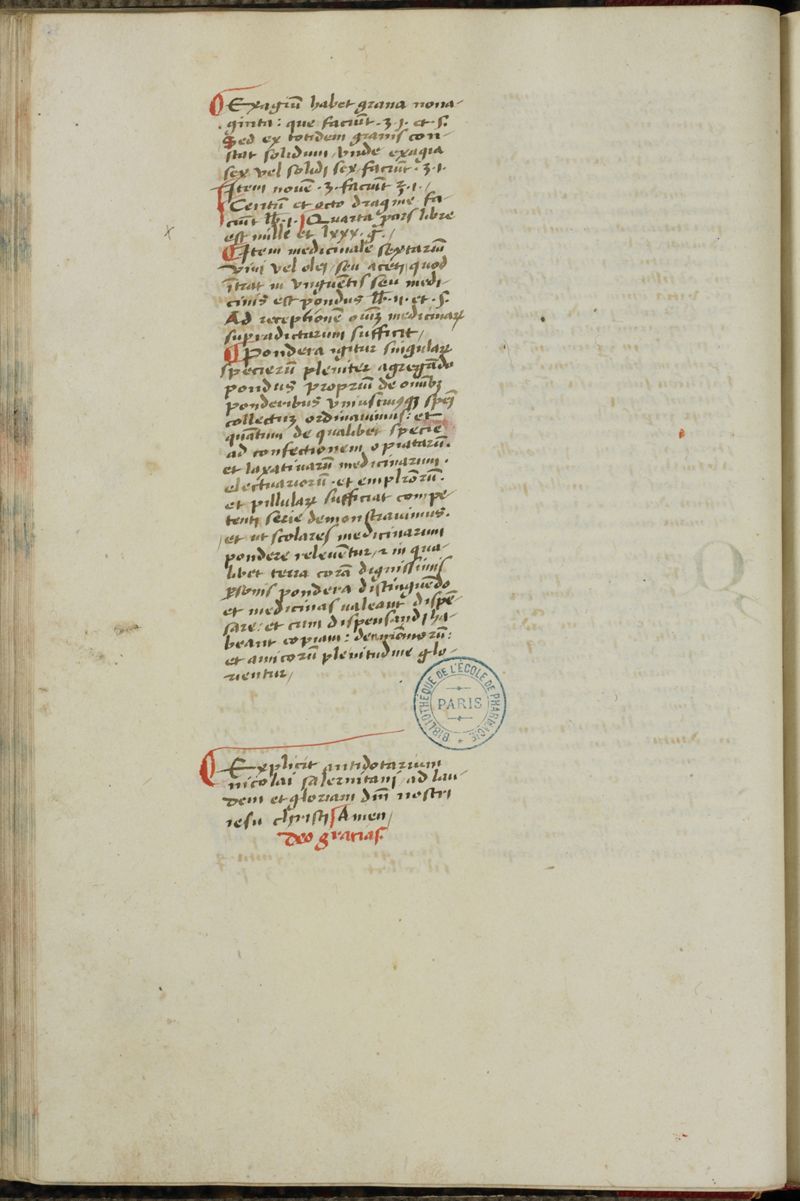 Exagiū habet grana nona-
ginta: que faciūt .ʒ.j. et .s.
Sed ex totidem granis con-
stat solidum / Vnde exagia
sex vel solidi sex faciūt .℥.1.
Item nouē .ʒ. faciūt ℥.1./
Centū et octo dragme fa-
ciūt lb.j. Quarta pars libre
est mille et lxxx. g./
Item medicinale sextariū
vini vel olei / seu aceti quod
ītrat in vnguētis seu medi-
cinis est pondus lb.ij. et .s.
Ad receptionē oīuꝫ medicinaꝝ
supradictarum sufficit /
Pondera igitur singulaꝝ
specierū pleniter agregādo
pondus propriū de omībꝫ
ponderibus vniuscuiusqꝫ spēi
collectuꝫ ordinauimus: et
quātum de qualibet specie
ad confectionem opiatarū.
et laxatiuarū medicinarum.
electuariorū. et emplr̄orū.
et pillulaꝝ sufficiat compe-
tenti serie demonstrauimus.
et ut scolares medicinarum
pondere releuētur, ⁊ in qua-
libet terra corā dignissimis
ꝑsonis pondera distinguēdo
et medicinas ualeant dispē-
sare: et cum dispensandi ha-
beant copiam: denariorū:
et amicorū plenitudine glo-
rientur /
Explicit antidotarium
nicolai salernitani ad lau-
dem et gloriam dn̄i nostri
iesu christi Amen /
Deo gracias.
BIBLIOTHÈQUE DE L'ÉCOLE DE PHARMACIE
PARIS